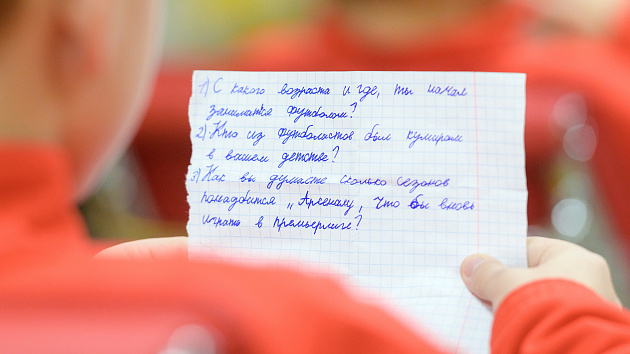 1) С какого возраста и где, ты начал
заниматся футболом?
2) Кто из футболистов был кумиром
в вашем детстве?
3) Как вы думаете сколько сезонов
понадобится „Арсеналу, что бы вновь
играть в премьерлиге?